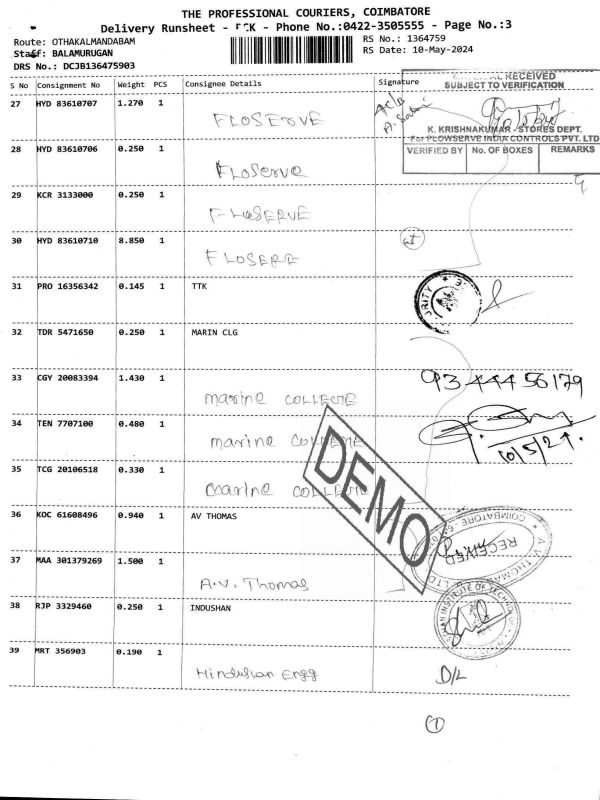 THE PROFESSIONAL COURIERS, COIMBATORE
Delivery Runsheet - - Phone No.:0422-3505555 - Page No.:3
Route: OTHAKALMANDABAM
RS No.: 1364759
Staff: BALAMURUGAN
RS Date: 10-May-2024
DRS No.: DCJB136475903
S No Consignment No Weight PCS Consignee Details Signature
RECEIVED
SUBJECT TO VERIFICATION
27 HYD 83610707 1.270 1 FLOSERVE
K. KRISHNAKUMAR - STORES DEPT.
For FLOWSERVE INDIA CONTROLS PVT. LTD
VERIFIED BY No. OF BOXES REMARKS
28 HYD 83610706 0.250 1 FLOSERVE
29 KCR 3133000 0.250 1 FLOSERVE
30 HYD 83610710 8.850 1 FLOSERE
31 PRO 16356342 0.145 1 TTK
32 TDR 5471650 0.250 1 MARIN CLG
33 CGY 20083394 1.430 1 marine COLLEGE 9344456179
34 TEN 7707100 0.480 1 marine COLLEGE
35 TCG 20106518 0.330 1 marine COLLEGE
DEMO
36 KOC 61608496 0.940 1 AV THOMAS
RECEIVED
37 MAA 301379269 1.500 1 A.V. Thomas
38 RJP 3329460 0.250 1 INDUSHAN
39 MRT 356903 0.190 1 Hindushan Engg D/L